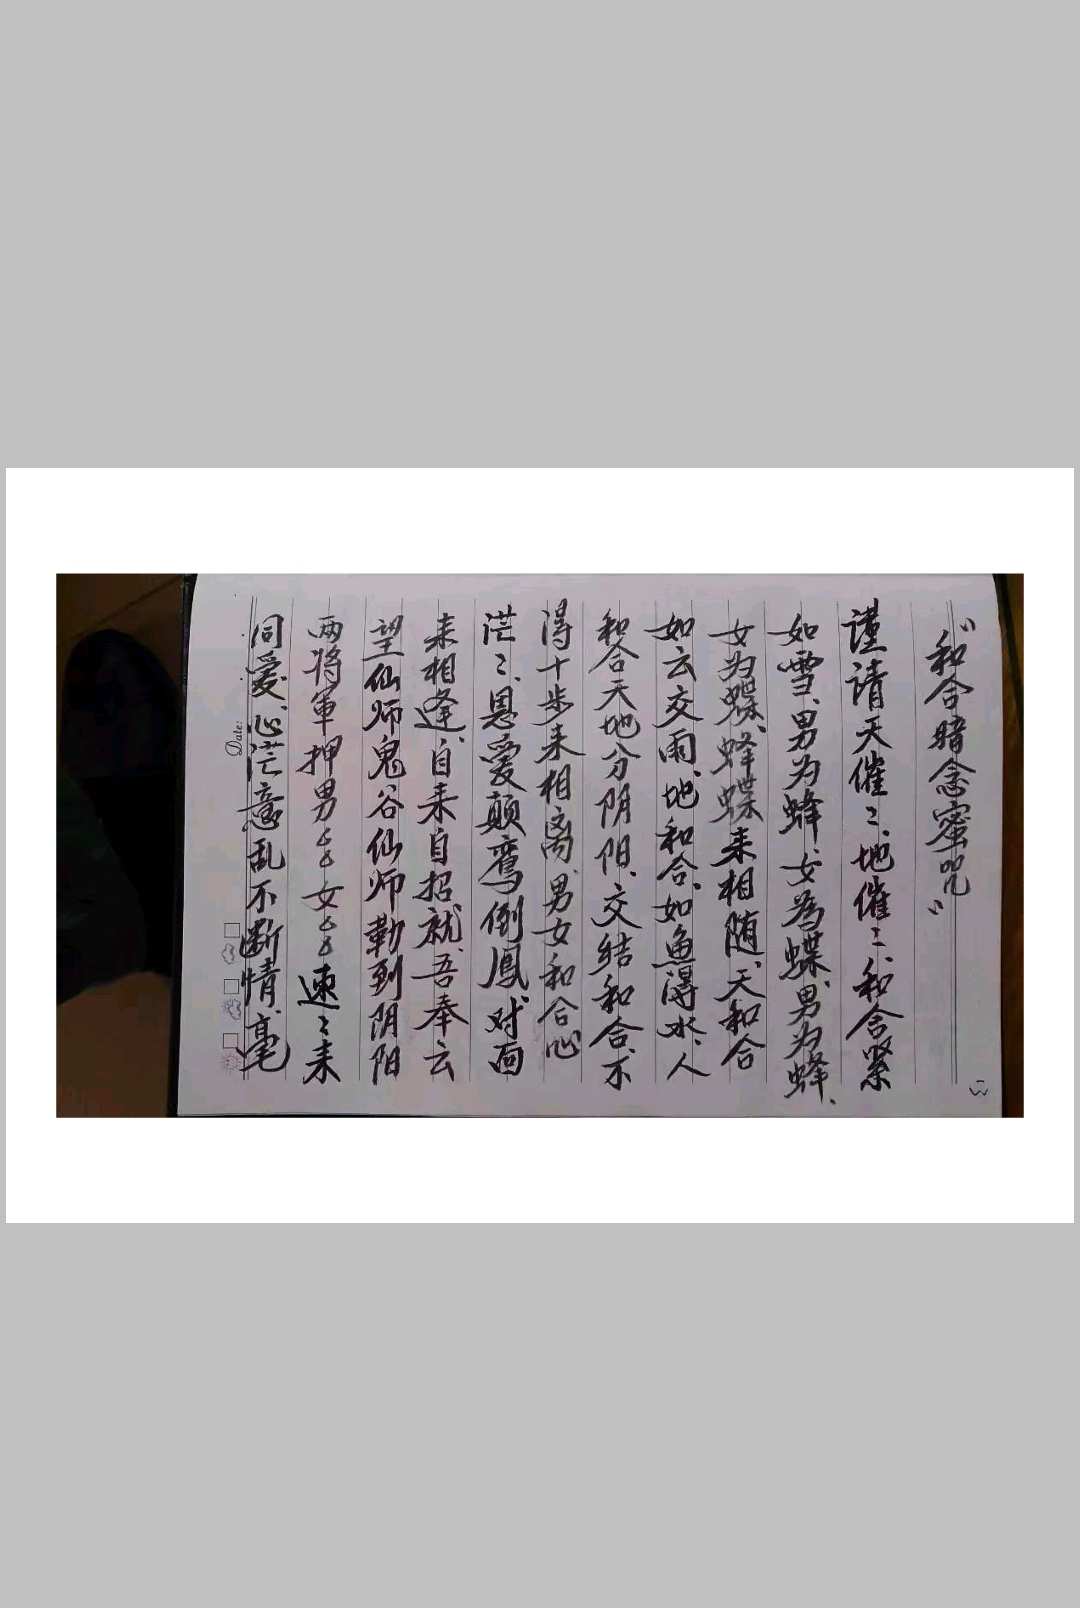 “和合暗念密咒”
谨请天催〻、地催〻、和合紧
如雪、男为蜂、女為蝶、男为蜂、
女为蝶、蜂蝶来相随、天和合
如云交雨、地和合、如鱼得水、人
和合天地分阴阳、交结和合、不
得十步来相离、男女和合心
茫〻、恩爱颠鸾倒鳳、对面
来相逢、自来自招就、吾奉云
望仙师鬼谷仙师勒到阴阳
两将軍押男女速〻来
同爱、心茫意乱不断情、毫
Date: